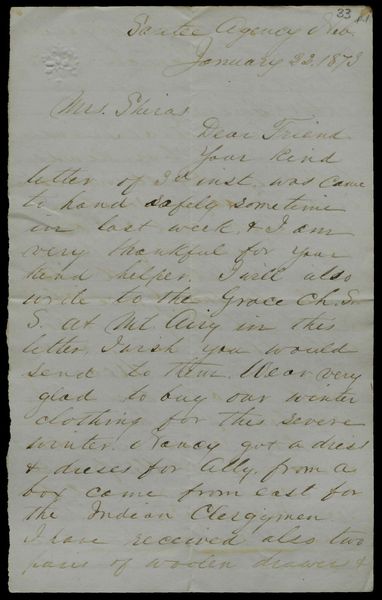 33
Santee Agency Neb.
January 22, 1873
Mrs. Shiras
Dear Friend
Your kind
letter of 3d inst. was came
to hand safely sometime
in last week, & I am
very thankful for your
kind helper. I will also
write to the Grace Ch. S.
S. at Mt Airy in this
letter, I wish you would
send to them. We ar very
glad to buy our winter
clothing for this severe
winter. Nancy got a dress
& dresses for Ally, from a
box came from east for
the Indian Clergymen
I have received also two
pairs of woolen drawers &